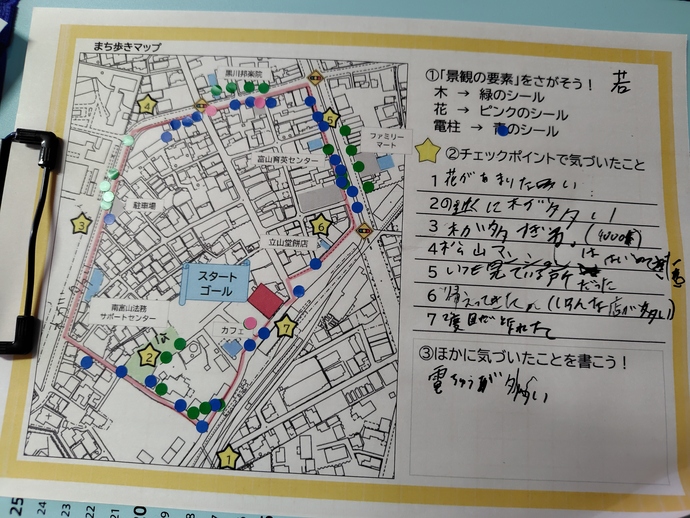 まち歩きマップ
黒川邦楽院
4
5
ファミリー
マート
富山育英センター
駐車場
3
6
立山堂餅店
スタート
ゴール
南富山法務
サポートセンター
カフェ
7
2
は
1
①「景観の要素」をさがそう！
若
木 → 緑のシール
花 → ピンクのシール
電柱 → 青のシール
②チェックポイントで気づいたこと
1 花があまりない
2の近くに木が多い
3 木が多すぎる。
4 松山マンションは
5 いつも見ている所だった
6 帰えってきた。
7
③ほかに気づいたことを書こう！
電ちゅうが多い
25
24
23
22
21
20
19
18
17
16